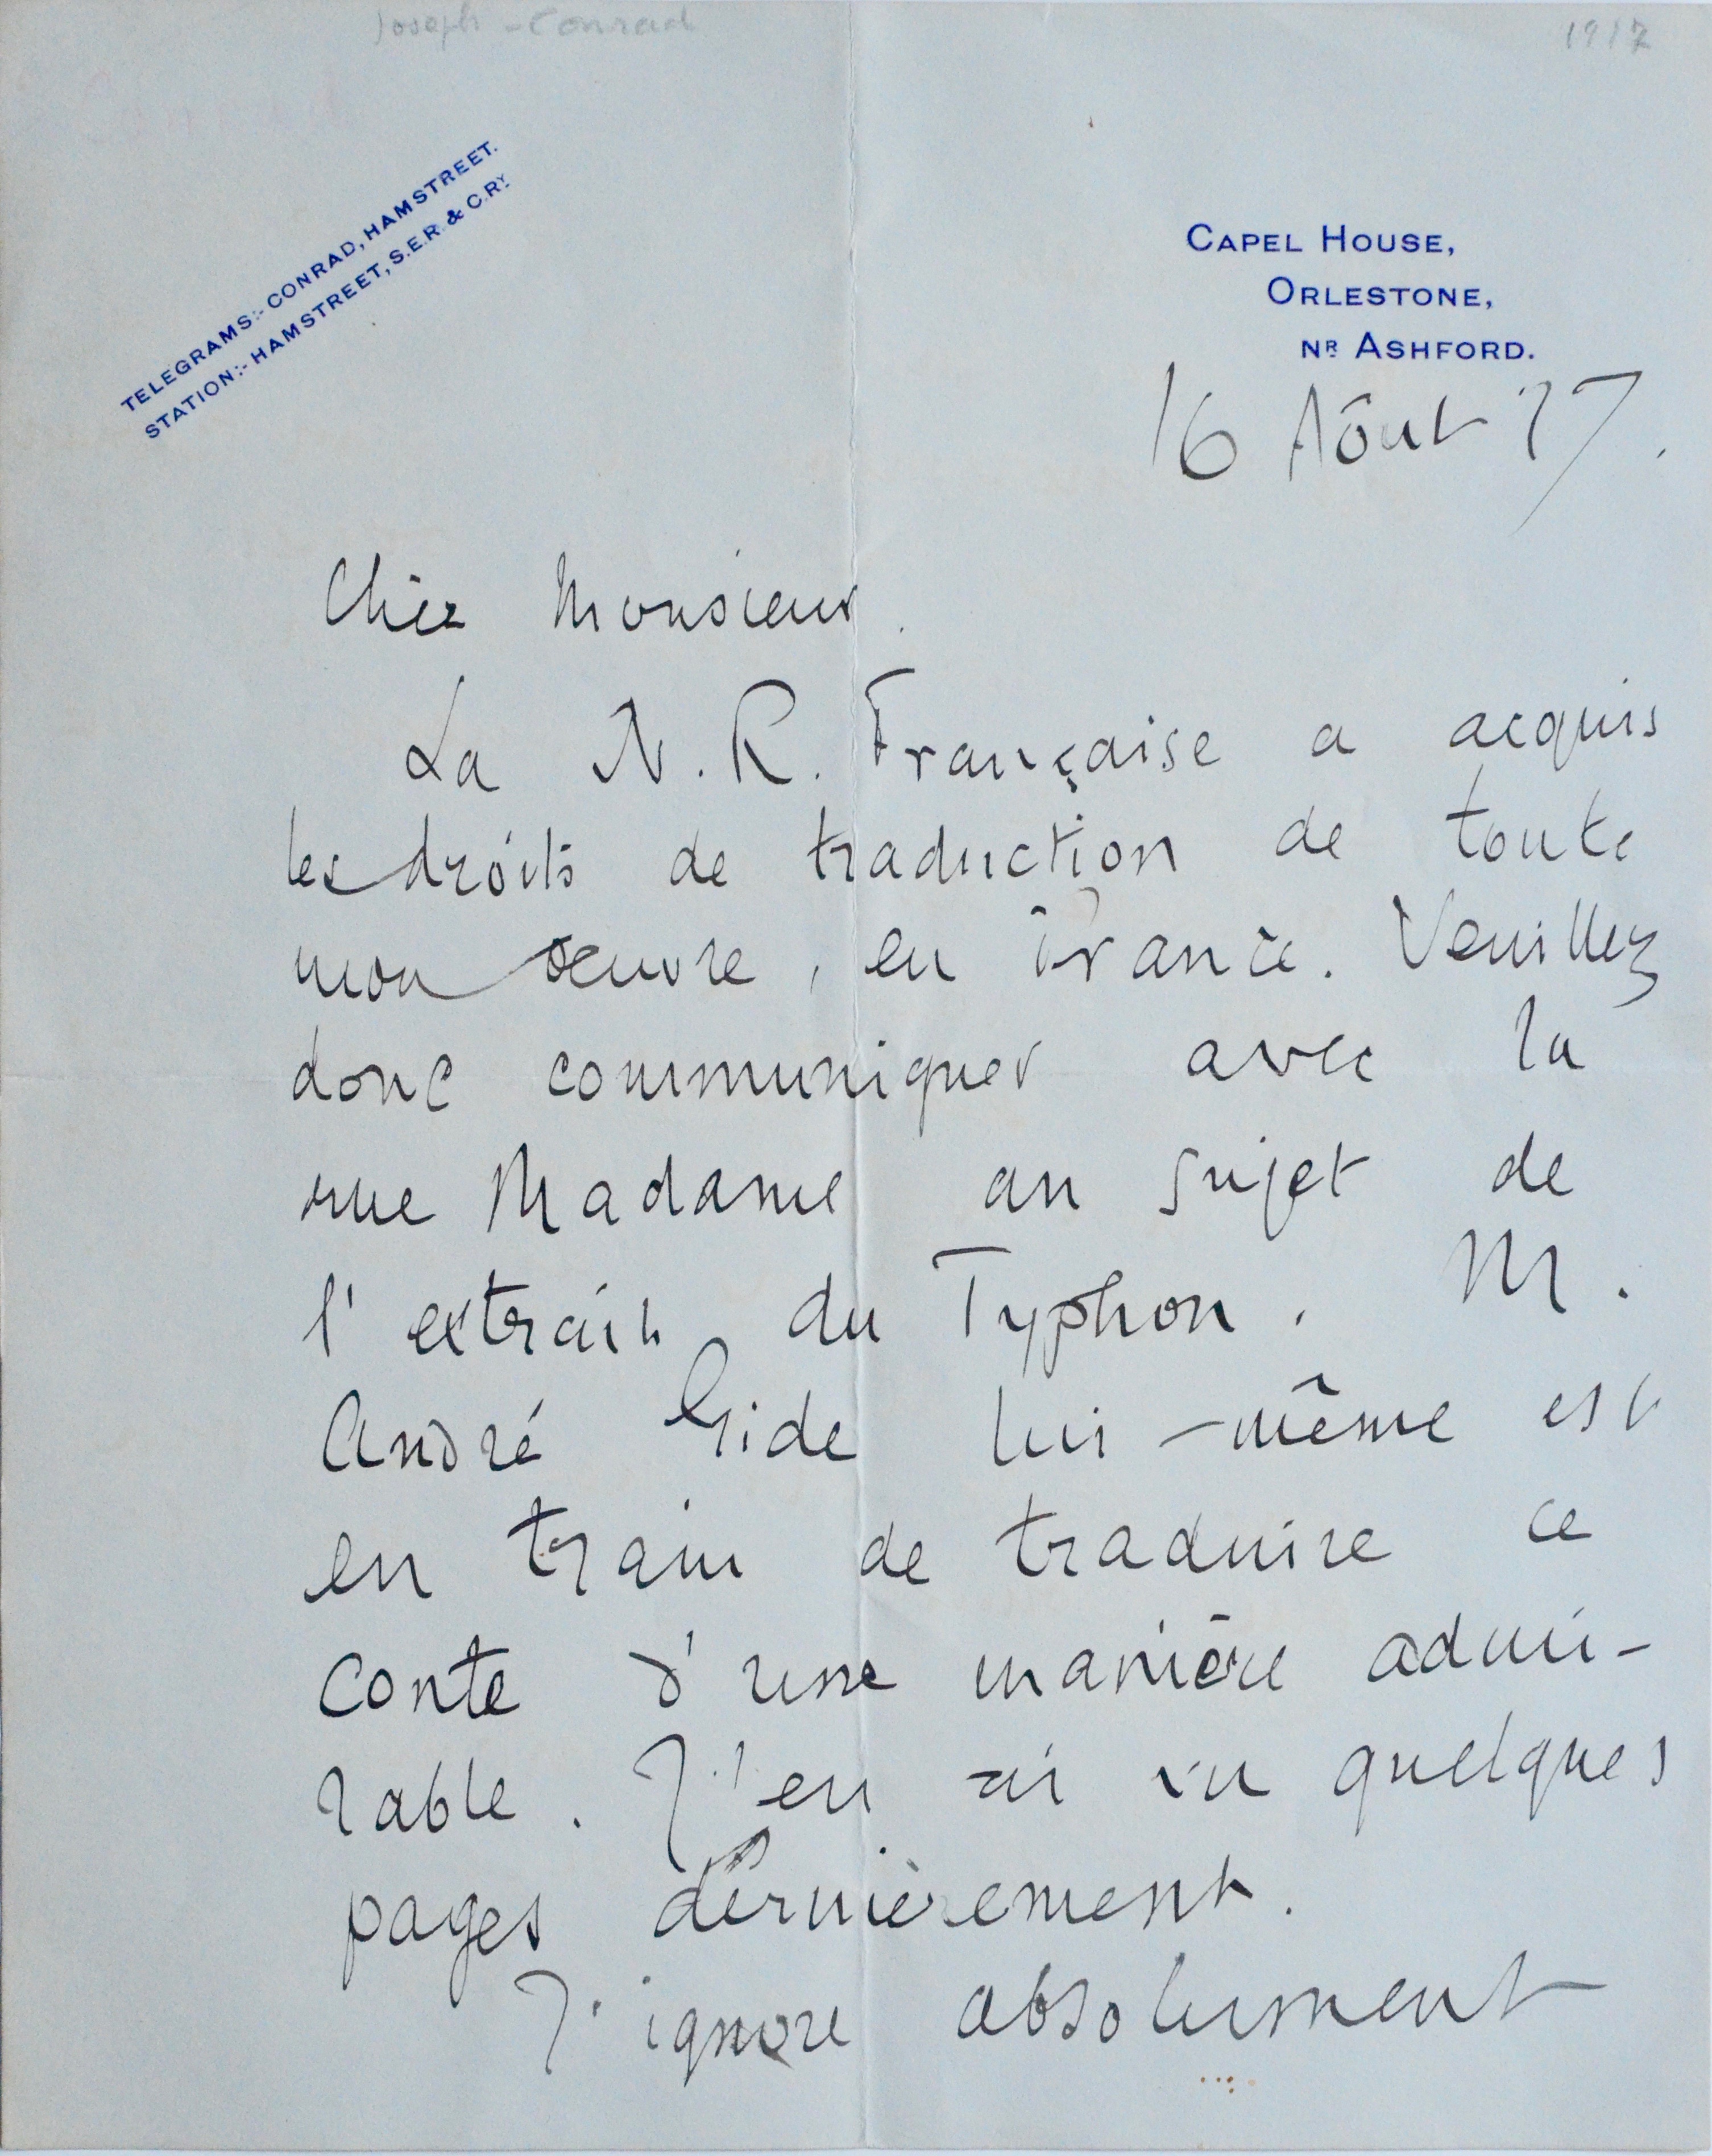 Joseph - Conrad
1917
TELEGRAMS:- CONRAD, HAMSTREET.
STATION:- HAMSTREET, S.E.R. & C.RY.
CAPEL HOUSE,
ORLESTONE,
NR ASHFORD.
16 Aôut 17.
Cher Monsieur.
La N. R. Française a acquis
les droits de traduction de toute
mon œuvre, en France. Veuillez
donc communiquer avec la
rue Madame au sujet de
l'extrait du Typhon. M.
André Gide lui-même est
en train de traduire ce
conte d'une manière admi-
rable. J'en ai vu quelques
pages dernièrement.
J'ignore absolument